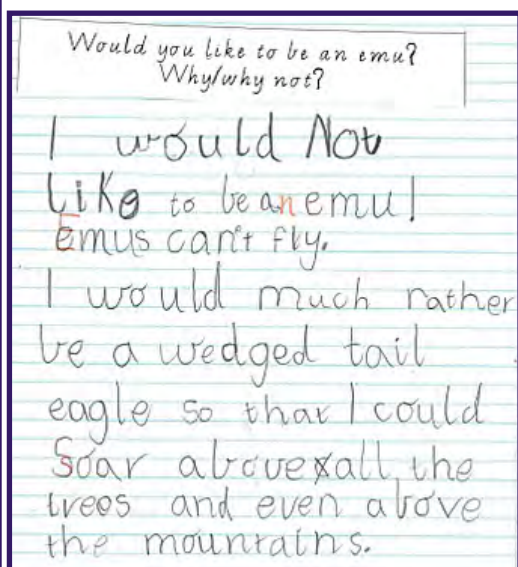 Would you like to be an emu?
Why/why not?
I would Not
Like to be an emu!
Emus can't fly.
I would much rather
be a wedged tail
eagle so that I could
Soar above all the
trees and even above
the mountains.